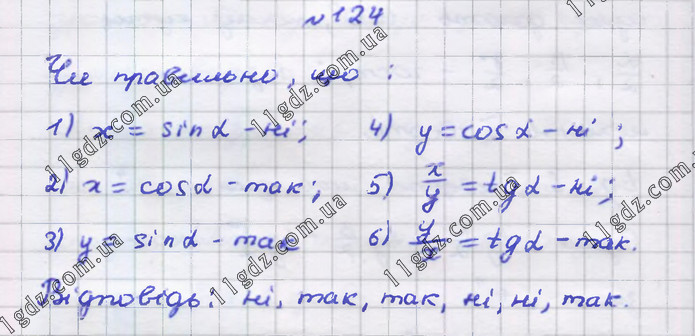 №124
Чи правильно, що:
1) x = sin α - ні; 4) y = cos α - ні;
2) x = cos α - так; 5) x/y = tg α - ні;
3) y = sin α - так 6) y/x = tg α - так.
Відповідь: ні, так, так, ні, ні, так.
11gdz.com.ua
11gdz.com.ua
11gdz.com.ua
11gdz.com.ua
11gdz.com.ua
11gdz.com.ua
11gdz.com.ua
11gdz.com.ua